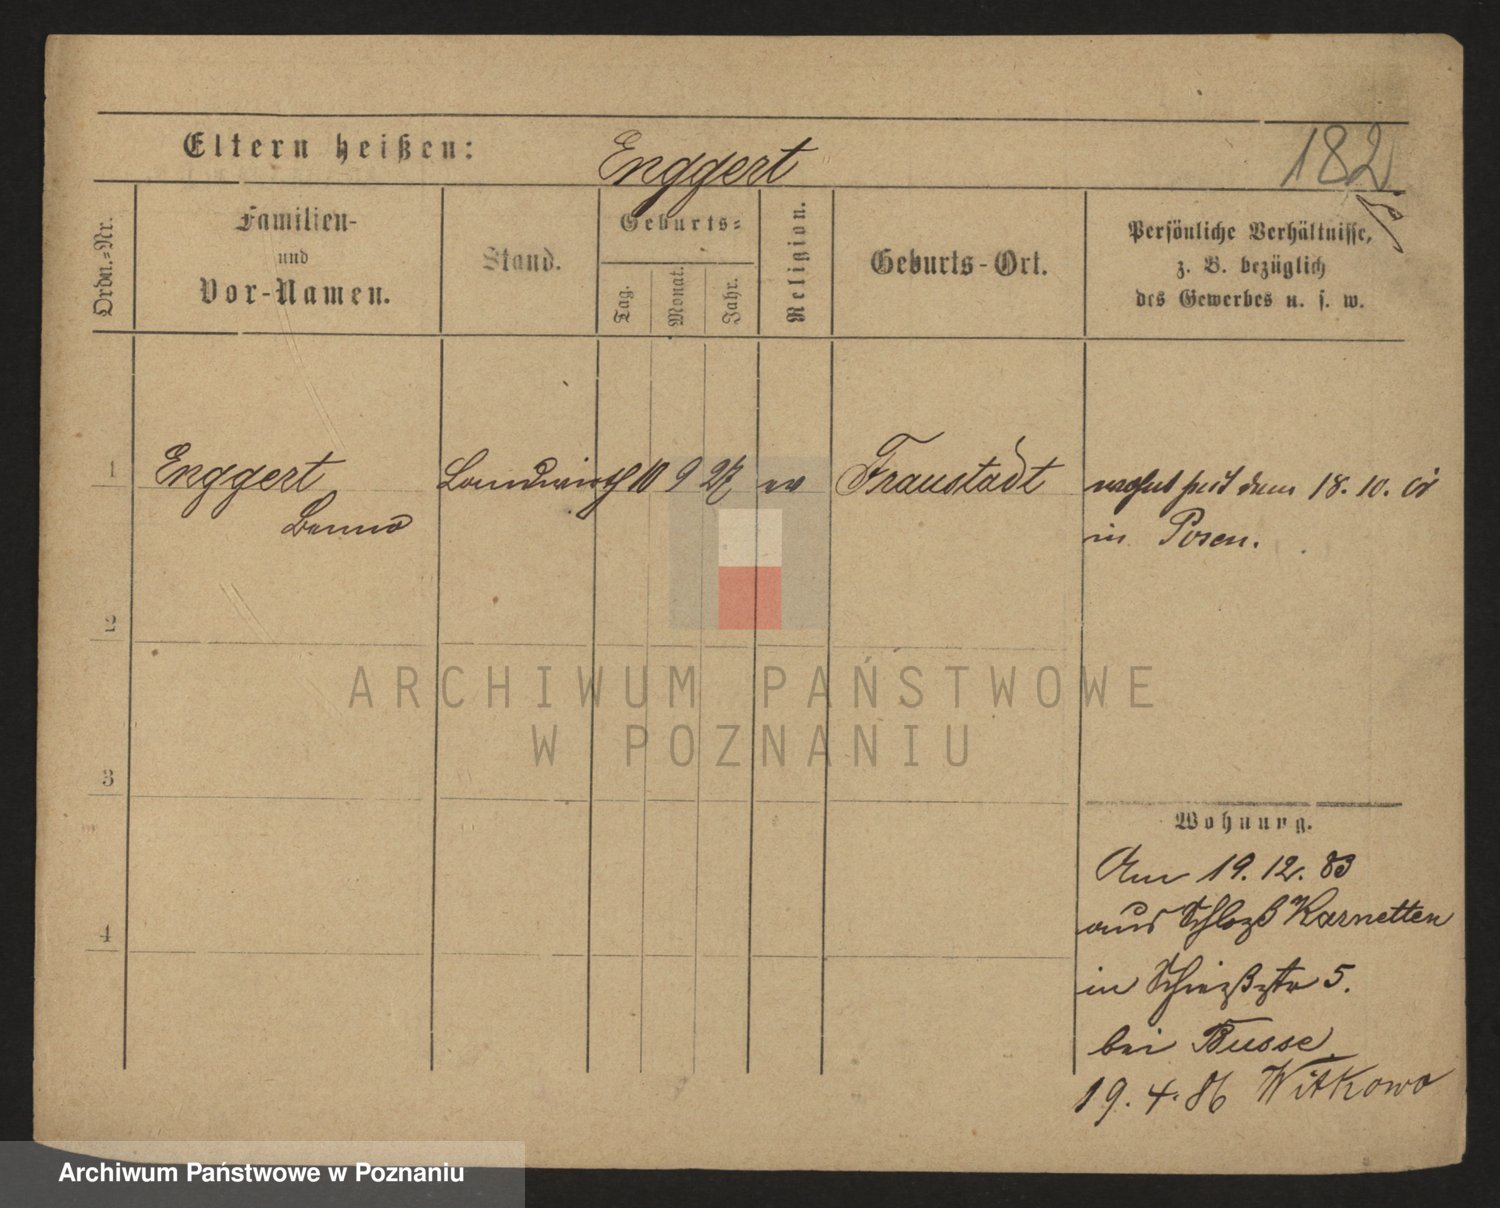 Eltern heißen: Enggert 182
Ordn.-Nr.
Familien-
und
Vor-Namen.
Stand.
Geburts-
Tag. Monat. Jahr.
Religion.
Geburts-Ort.
Persönliche Verhältnisse,
z. B. bezüglich
des Gewerbes u. s. w.
1 Enggert Landwirth 10 9 27 ev Fraustadt wohnt seit dem 18. 10. cr
Benno in Posen.
2
3
4
Wohnung.
Am 19. 12. 83
aus Schloß Karnetten
in Schießstr 5.
bei Busse
19. 4. 86 Witkowo
ARCHIWUM PAŃSTWOWE
W POZNANIU
Archiwum Państwowe w Poznaniu